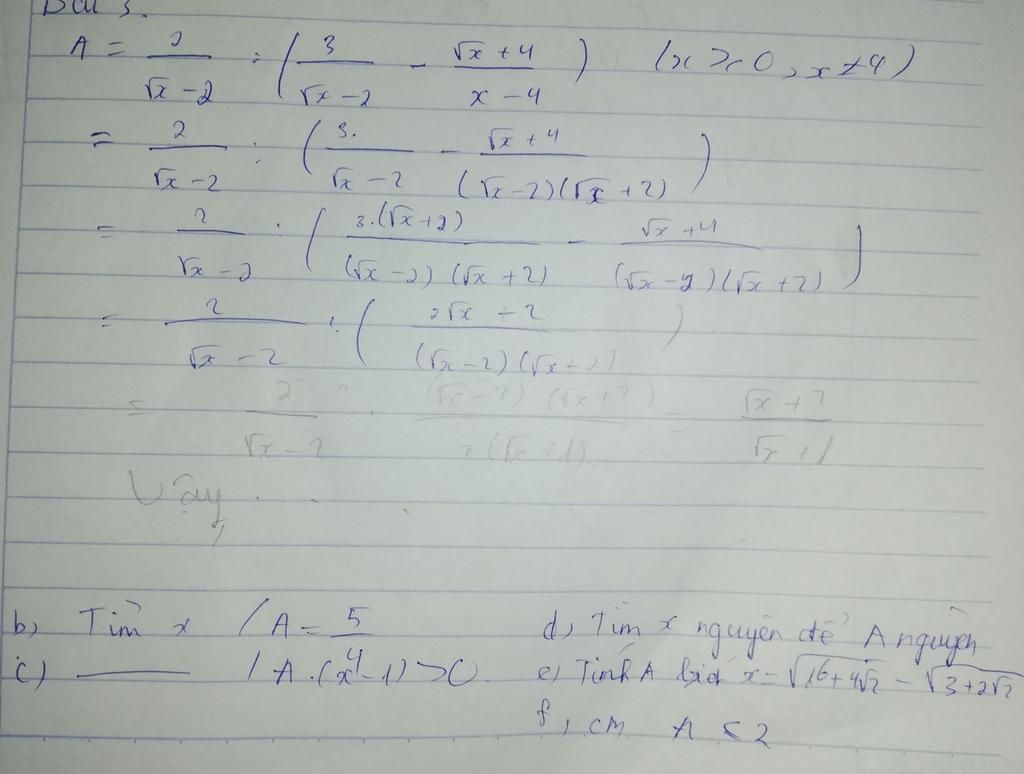 Bài 3.
A = 2/(√x − 2) : (3/(√x − 2) − (√x + 4)/(x − 4)) (x ≥ 0, x ≠ 4)
= 2/(√x − 2) : (3./(√x − 2) − (√x + 4)/((√x − 2)(√x + 2)))
= 2/(√x − 2) : (3.(√x + 2)/((√x − 2)(√x + 2)) − (√x + 4)/((√x − 2)(√x + 2)))
= 2/(√x − 2) : ((2√x + 2)/((√x − 2)(√x + 2)))
= 2/(√x − 2) · ((√x − 2)(√x + 2))/(2(√x + 1)) = (√x + 2)/(√x + 1)
Vậy
b) Tìm x / A = 5/4
c) ——— / A.(x − 1) > 0
d) Tìm x nguyên để A nguyên
e) Tính A biết x = √(16 + 4√2) − √(3 + 2√2)
f, cm A ≤ 2